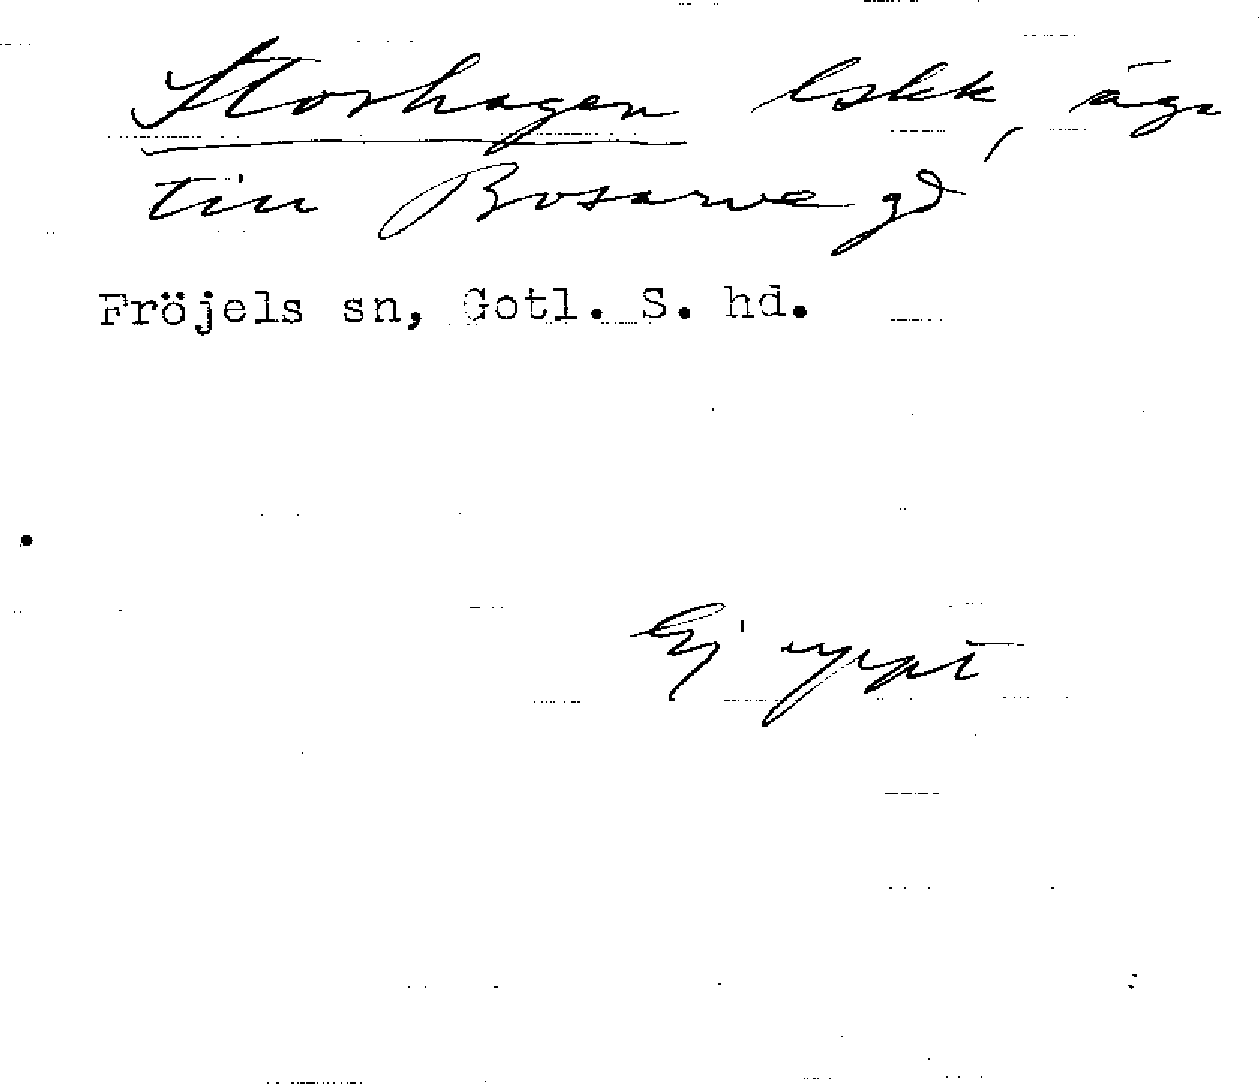 Storhagen bskk, äga
till Bosarve gd
Fröjels sn, Gotl. S. hd.
Ej uppt